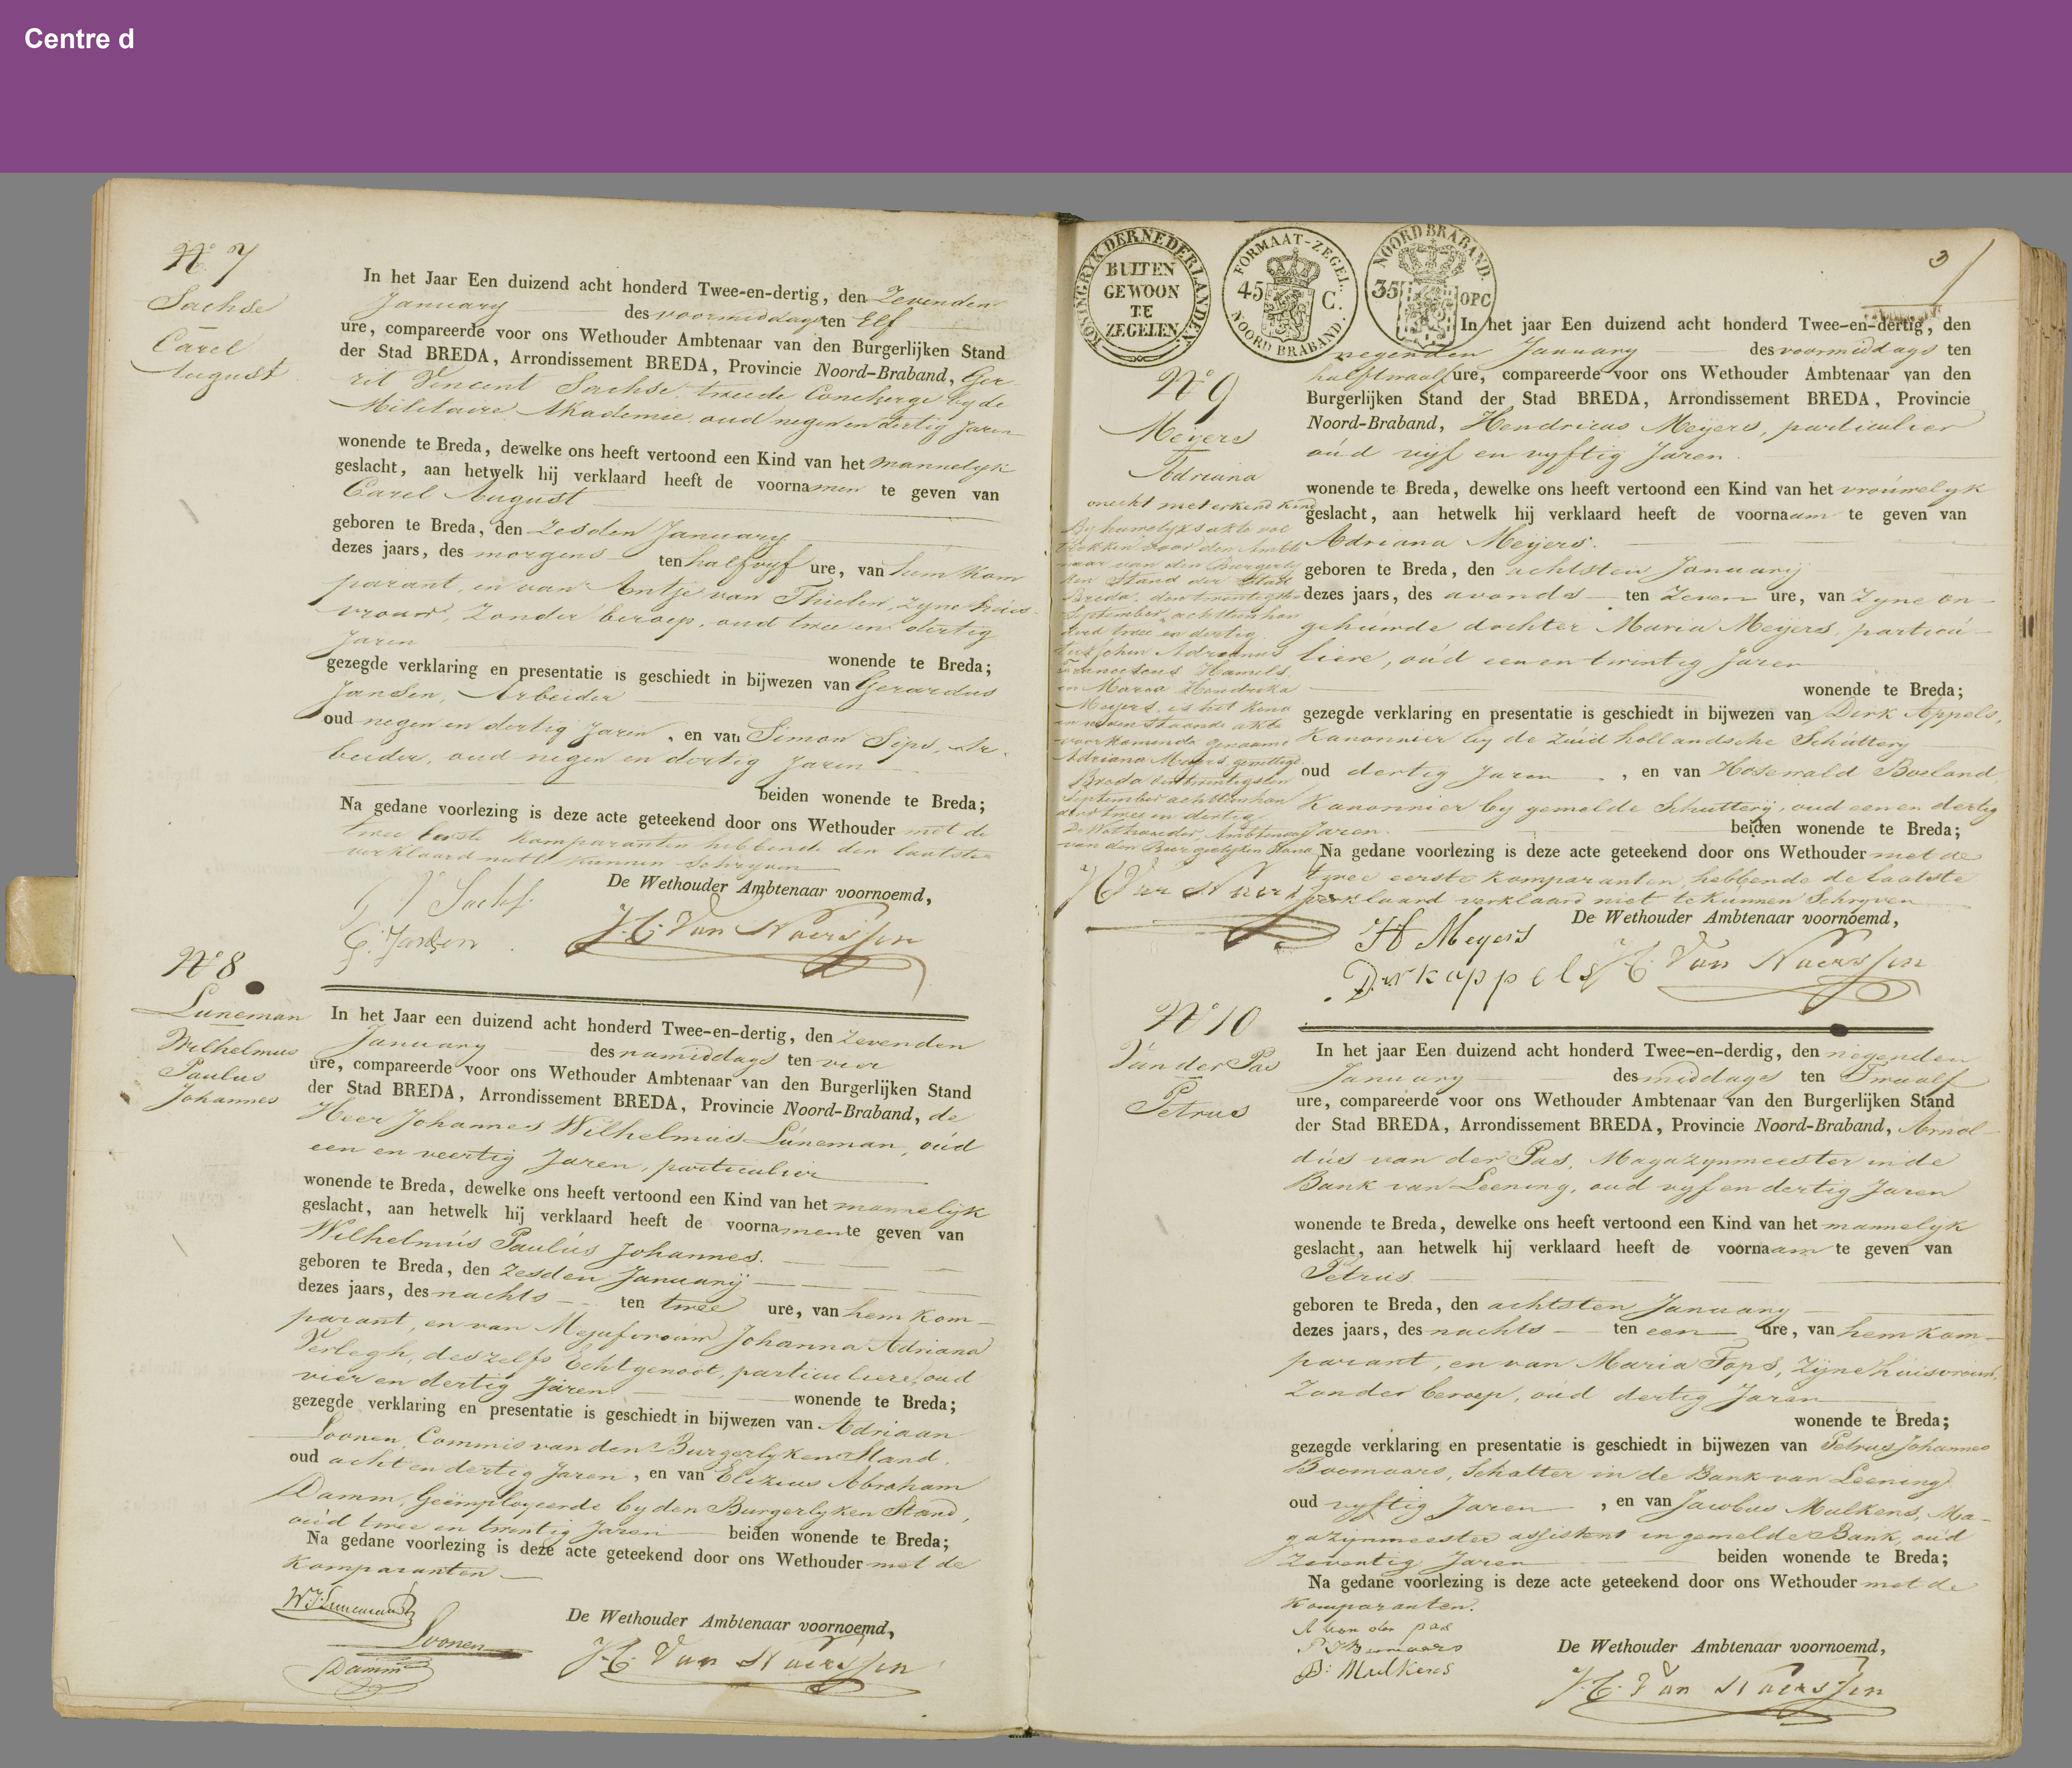 Centre d
No 7
Sachse
Carel
August
In het Jaar Een duizend acht honderd Twee-en-dertig, den Zevenden
January des voormiddags ten Elf
ure, compareerde voor ons Wethouder Ambtenaar van den Burgerlijken Stand
der Stad BREDA, Arrondissement BREDA, Provincie Noord-Braband, Ger
rit Vincent Sachse, tweede Concherge by de
Militaire Akademie, oud negen en dertig Jaren
wonende te Breda, dewelke ons heeft vertoond een Kind van het mannelyk
geslacht, aan hetwelk hij verklaard heeft de voornamen te geven van
Carel August
geboren te Breda, den Zesden January
dezes jaars, des morgens ten half vyf ure, van hem kom
parant, en van Antje van Thielen, zyne huis
vrouw, Zonder beroep, oud twee en dertig
Jaren
wonende te Breda;
gezegde verklaring en presentatie is geschiedt in bijwezen van Gerardus
Jansen, Arbeider
oud negen en dertig Jaren, en van Simon Sips, Ar-
beider, oud negen en dertig Jaren
beiden wonende te Breda;
Na gedane voorlezing is deze acte geteekend door ons Wethouder met de
twee eerste komparanten hebbende den laatsten
verklaard niet te kunnen schryven
De Wethouder Ambtenaar voornoemd,
G V Sachse
G. Jansen
J. C. Van Naerssen
No 8
Luneman
Wilhelmus
Paulus
Johannes
In het Jaar een duizend acht honderd Twee-en-dertig, den Zevenden
January des namiddags ten vier
ure, compareerde voor ons Wethouder Ambtenaar van den Burgerlijken Stand
der Stad BREDA, Arrondissement BREDA, Provincie Noord-Braband, de
Heer Johannes Wilhelmus Luneman, oud
een en veertig Jaren, particulier
wonende te Breda, dewelke ons heeft vertoond een Kind van het mannelijk
geslacht, aan hetwelk hij verklaard heeft de voornamen te geven van
Wilhelmus Paulus Johannes.
geboren te Breda, den Zesden Januarij
dezes jaars, des nachts ten twee ure, van hem kom-
parant, en van Mejufvrouw Johanna Adriana
Verlegh, deszelfs Echtgenoot, particuliere, oud
vier en dertig Jaren. wonende te Breda;
gezegde verklaring en presentatie is geschiedt in bijwezen van Adriaan
Loonen, Commis van den Burgerlyken Stand,
oud acht en dertig Jaren, en van Elizeus Abraham
Damm, Geëmployeerde by den Burgerlyken Stand,
oud twee en twintig Jaren beiden wonende te Breda;
Na gedane voorlezing is deze acte geteekend door ons Wethouder met de
komparanten
De Wethouder Ambtenaar voornoemd,
Loonen
Damm
J. C. Van Naerssen
KONINGRYK DER NEDERLANDEN.
BUITEN
GEWOON
TE
ZEGELEN
FORMAAT-ZEGEL.
45 C.
NOORD BRABAND.
NOORD BRABAND.
35 OPC
3
No 9
Meyers
Adriana
onecht niet erkend kind
By huwelyks akte vol
trokken voor den Ambte
naar van den Burgerly
ken Stand der Stad
Breda, den twintigsten
September achttienhon
derd twee en dertig
tusschen Adrianus
Franciscus Hamels,
en Maria Hendrika
Meyers, is het kind
in nevenstaande akte
voorkomende genaamd
Adriana Meyers, gewettigd.
Breda den twintigsten
September achttienhon
derd twee en dertig
De Wethouder, Ambtenaar
van den Burgerlyken Stand,
J C Van Naerssen
In het jaar Een duizend acht honderd Twee-en-dertig, den
negenden January des voormiddags ten
half twaalf ure, compareerde voor ons Wethouder Ambtenaar van den
Burgerlijken Stand der Stad BREDA, Arrondissement BREDA, Provincie
Noord-Braband, Hendricus Meijers, particulier
oud vijf en vyftig Jaren.
wonende te Breda, dewelke ons heeft vertoond een Kind van het vrouwelyk
geslacht, aan hetwelk hij verklaard heeft de voornaam te geven van
Adriana Meijers.
geboren te Breda, den achtsten Januarij
dezes jaars, des avonds ten Zeven ure, van Zyne on-
gehuwde dochter Maria Meijers, particu-
liere, oud een en twintig Jaren
wonende te Breda;
gezegde verklaring en presentatie is geschiedt in bijwezen van Dirk Appels,
Kanonnier by de Zuid hollandsche Schuttery
oud dertig Jaren, en van Hosewald Boeland,
Kanonnier by gemelde Schutterij, oud een en dertig
Jaren. beiden wonende te Breda;
Na gedane voorlezing is deze acte geteekend door ons Wethouder met de
twee eerste komparanten hebbende de laatste
verklaard verklaard niet te kunnen Schryven
De Wethouder Ambtenaar voornoemd,
H Meyers
Dirk appels
J C Van Naerssen
No 10
Van der Pas
Petrus
In het jaar Een duizend acht honderd Twee-en-derdig, den negenden
January des middags ten Twaalf
ure, compareerde voor ons Wethouder Ambtenaar van den Burgerlijken Stand
der Stad BREDA, Arrondissement BREDA, Provincie Noord-Braband, Arnol-
dus van der Pas, Magazynmeester in de
Bank van Leening, oud vyf en dertig Jaren
wonende te Breda, dewelke ons heeft vertoond een Kind van het mannelijk
geslacht, aan hetwelk hij verklaard heeft de voornaam te geven van
Petrus
geboren te Breda, den achtsten January
dezes jaars, des nachts ten een ure, van hem kom-
parant, en van Maria Tops, Zijne huisvrouw,
Zonder beroep, oud dertig Jaren
wonende te Breda;
gezegde verklaring en presentatie is geschiedt in bijwezen van Petrus Johannes
Boomaars, Schatter in de Bank van Leening
oud vyftig Jaren, en van Jacobus Mulkens, Ma-
gazijnmeester assistent in gemelde Bank, oud
Zeventig Jaren beiden wonende te Breda;
Na gedane voorlezing is deze acte geteekend door ons Wethouder met de
komparanten.
De Wethouder Ambtenaar voornoemd,
A van der pas
P J Boomaars
Mulkens
J. C. Van Naerssen